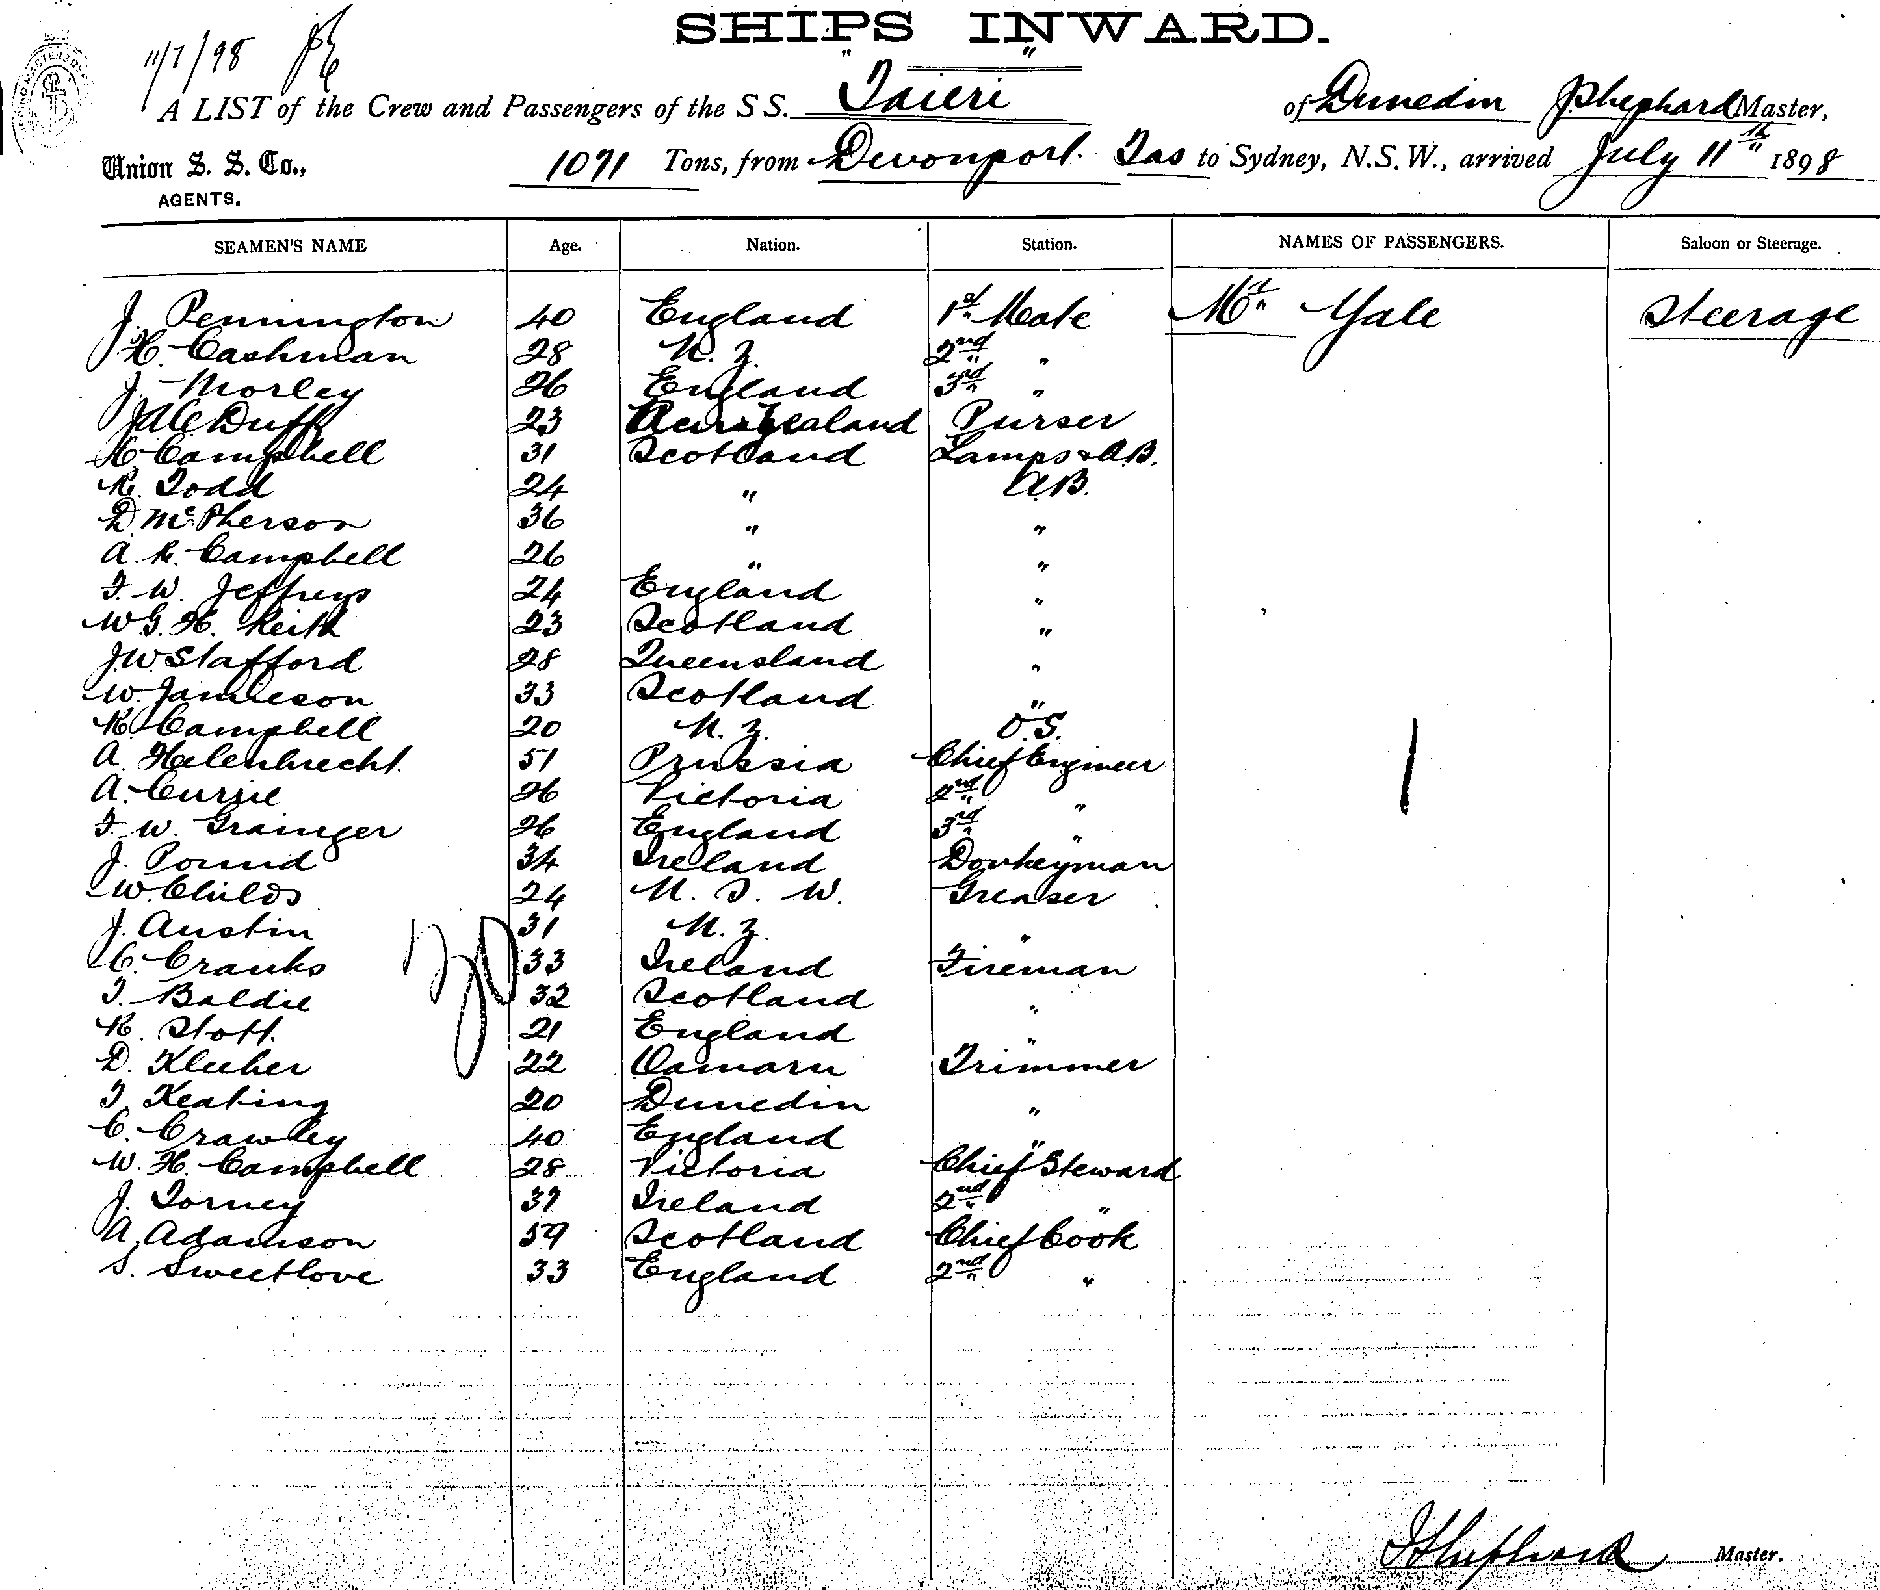 SHIPS INWARD.
11/7/98
A LIST of the Crew and Passengers of the S S. Taieri of Dunedin J Shephard Master,
Union S. S. Co., 1071 Tons, from Devonport. Tas to Sydney, N.S.W., arrived July 11th 1898
AGENTS.
SEAMEN'S NAME Age. Nation. Station. NAMES OF PASSENGERS. Saloon or Steerage.
J. Pennington 40 England 1st Mate Mr Yale Steerage
H. Cashman 28 N. Z. 2nd "
J. Morley 26 England 3rd "
Duff 23 New Zealand Purser
H Campbell 31 Scotland Lamps & A.B.
R. Todd 24 " A.B.
D McPherson 36 " "
A. R. Campbell 26 " "
F. W. Jeffreys 24 England "
W G. H. Keith 23 Scotland "
J. W Stafford 28 Queensland "
W. Jamieson 33 Scotland "
R. Campbell 20 N. Z. O.S.
A. Halenbrecht 51 Prussia Chief Engineer
A. Currie 26 Victoria 2nd "
F. W. Grainger 26 England 3rd "
J. Pound 34 Ireland Donkeyman
W. Childs 24 N. S. W. Greaser
J. Austin 31 N. Z. "
C. Cranks 33 Ireland Fireman
T. Baldie 32 Scotland "
R. Stott. 21 England "
D. Kleeher 22 Oamaru Trimmer
T. Keating 20 Dunedin "
C. Crawley 40 England "
W. H. Campbell 28 Victoria Chief Steward
J. Torney 37 Ireland 2nd "
A. Adamson 59 Scotland Chief Cook
S. Sweetlove 33 England 2nd "
30
1
J Shephard Master.